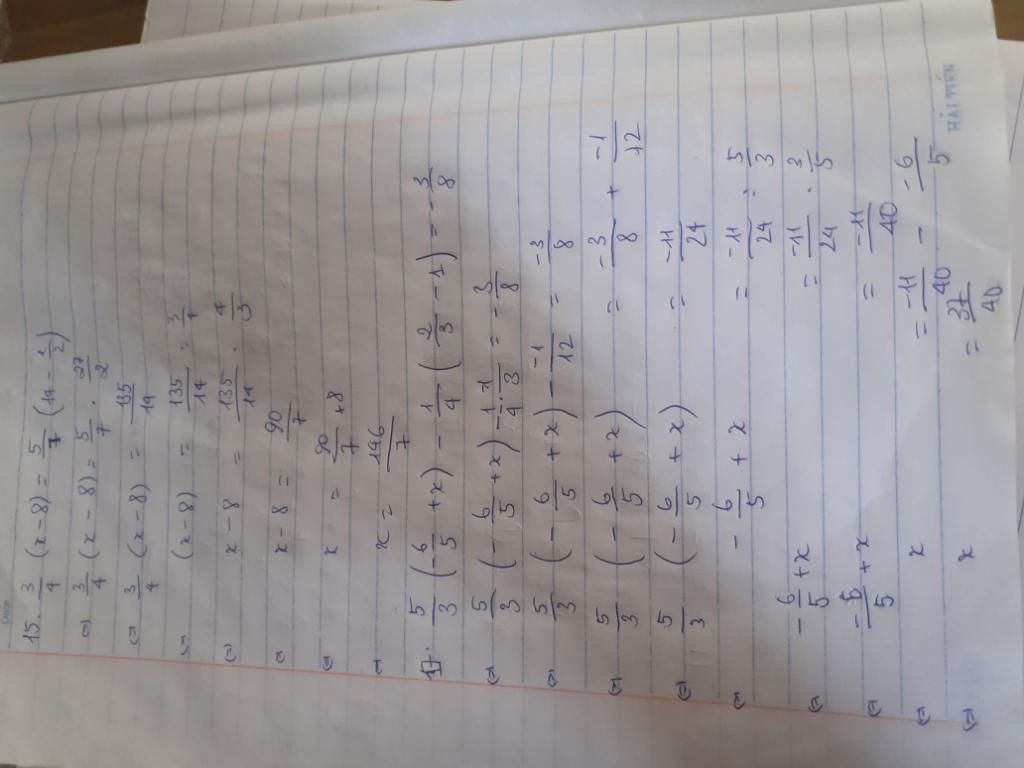 Date
15. 3/4 (x-8) = 5/7 (14 - 1/2)
⇔ 3/4 (x-8) = 5/7 . 27/2
⇔ 3/4 (x-8) = 135/14
⇔ (x-8) = 135/14 : 3/4
⇔ x-8 = 135/14 . 4/3
⇔ x-8 = 90/7
⇔ x = 90/7 + 8
⇔ x = 146/7
17. 5/3 (-6/5 + x) - 1/4 (2/3 - 1) = -3/8
⇔ 5/3 (-6/5 + x) - 1/4 . -1/3 = -3/8
⇔ 5/3 (-6/5 + x) - -1/12 = -3/8
⇔ 5/3 (-6/5 + x) = -3/8 + -1/12
⇔ 5/3 (-6/5 + x) = -11/24
⇔ -6/5 + x = -11/24 : 5/3
⇔ -6/5 + x = -11/24 . 3/5
⇔ -6/5 + x = -11/40
⇔ x = -11/40 - -6/5
⇔ x = 37/40
HẢI TIẾN